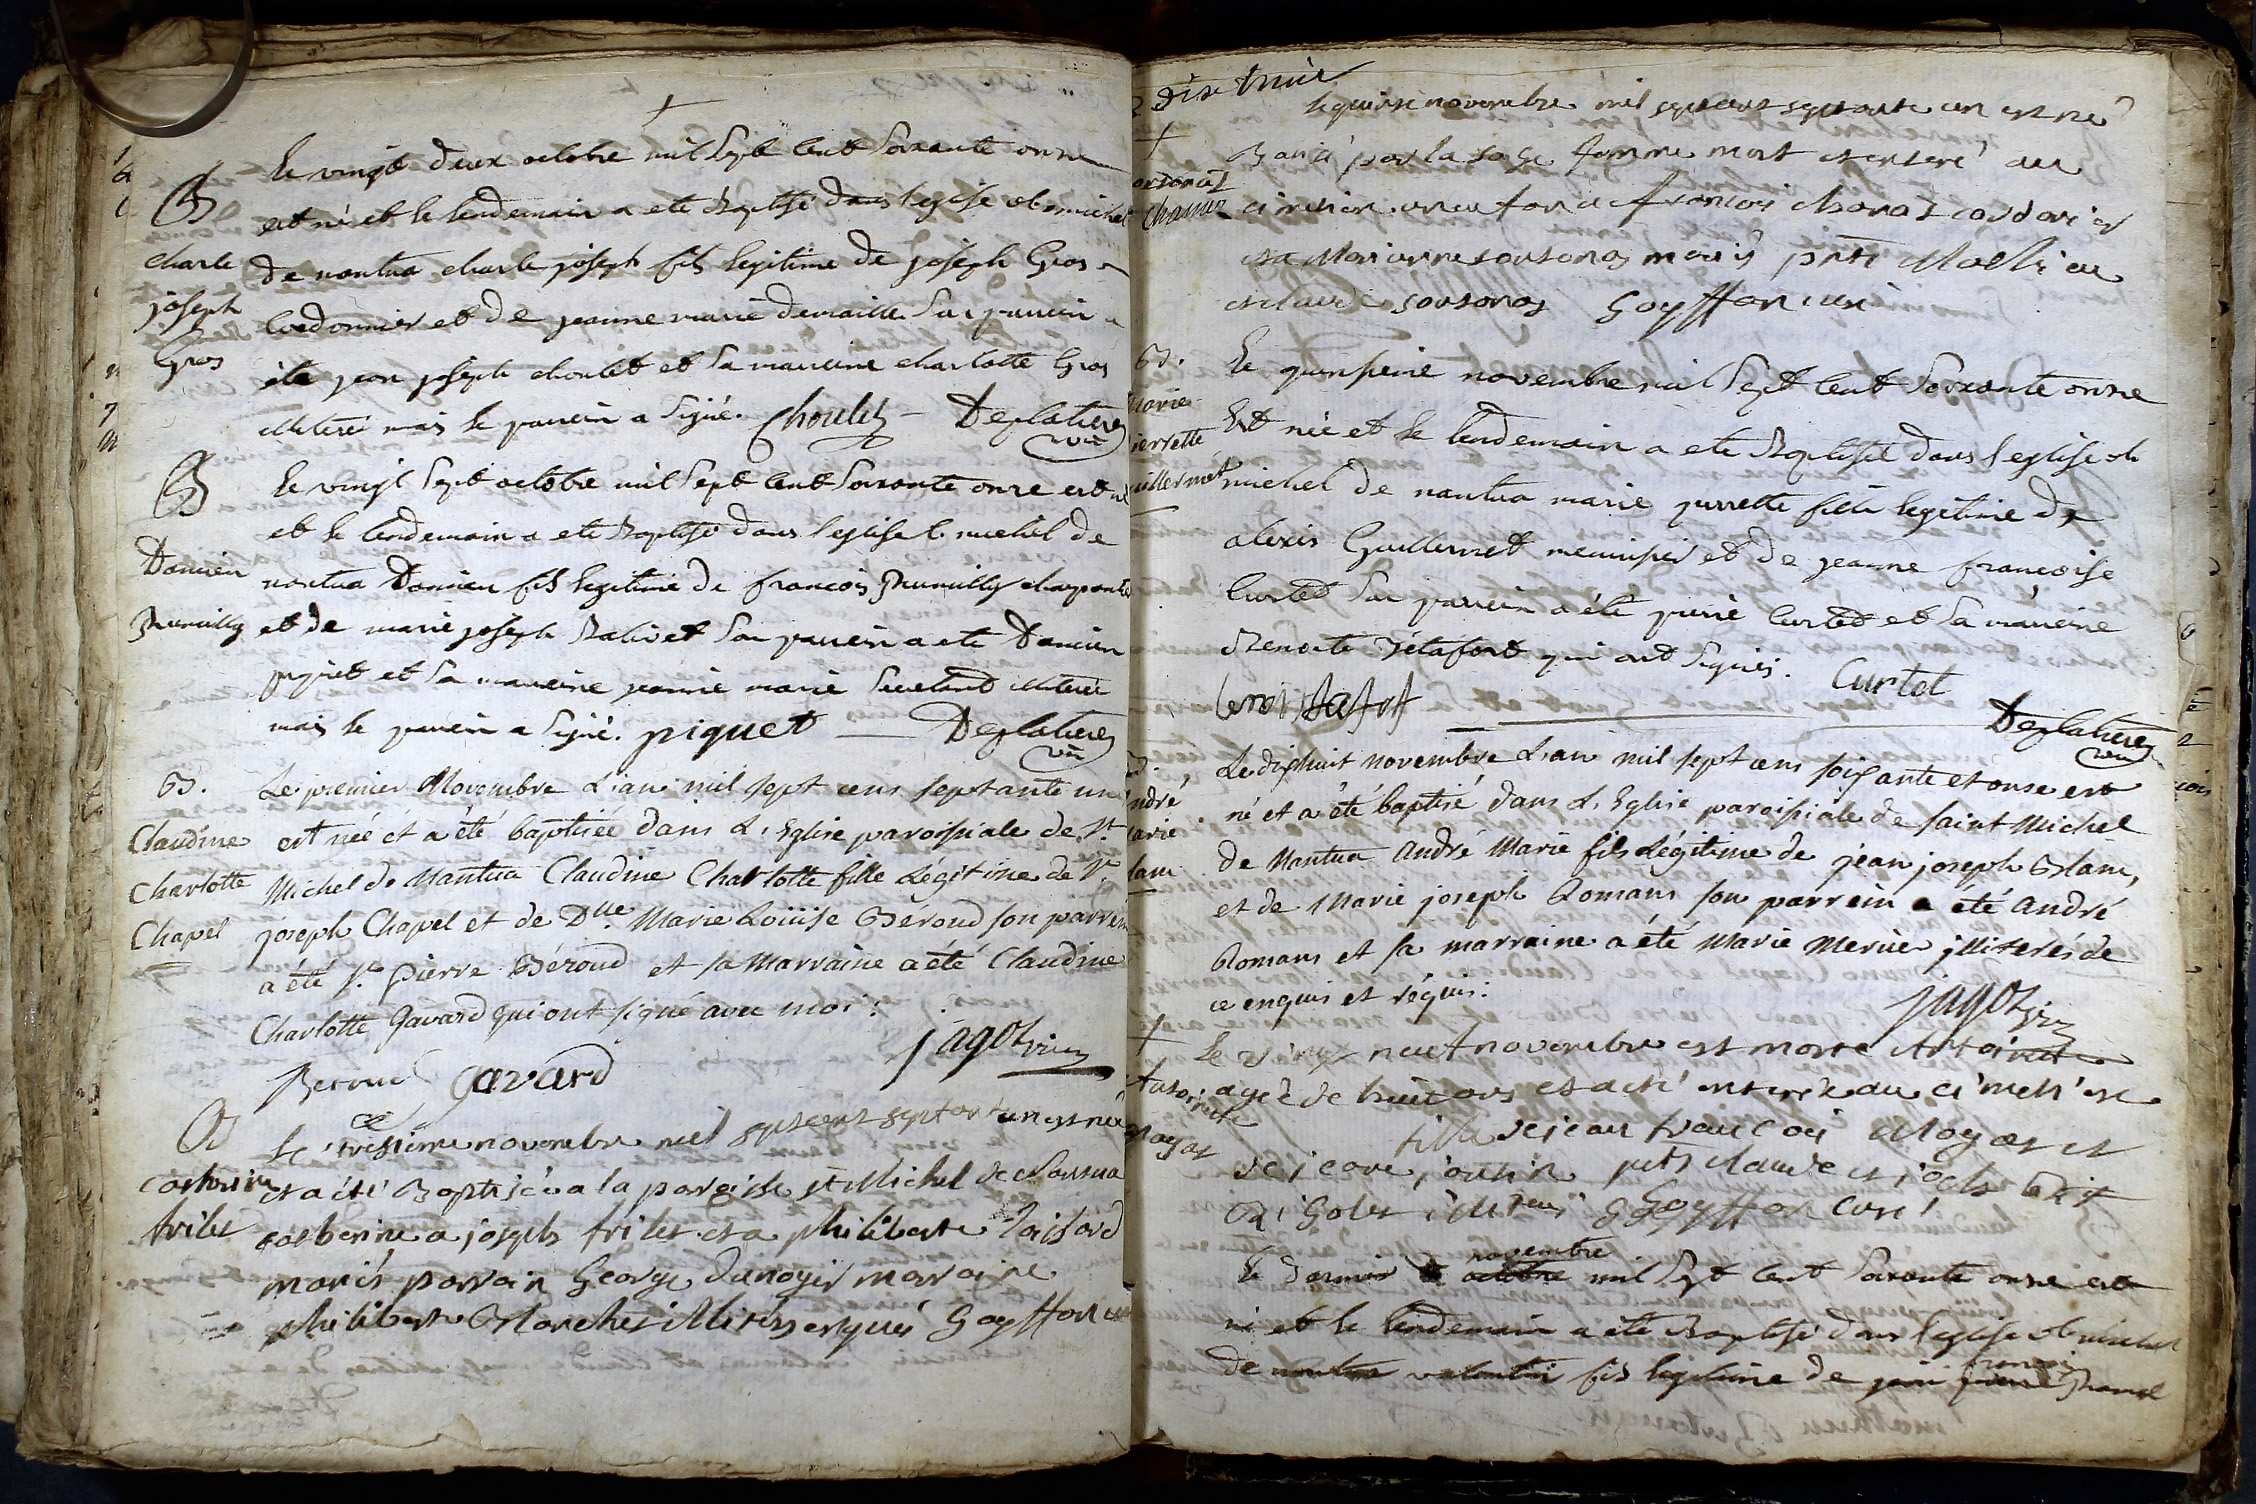 Le vingt deux octobre mil sept cent soixante onze
est né et le lendemain a eté Baptisé dans l'eglise st michel
B
charle
joseph
Gros
de nantua charle joseph fils legitime de joseph Gros
cordonnier et de jeanne marie demaille son parrein a
été jean joseph choulet et sa mareine charlotte Gros
illiterée mais le parrein a signé. Choulet - Deglatieres
vic
B
Damien
Brunilly
Le vingt sept octobre mil sept cent soixante onze est né
et le lendemain a eté Baptisé dans l'eglise st michel de
nantua Damien fils legitime de francois Brunilly charpentier
et de marie joseph Balivet son parrein a eté Damien
piquet et sa mareine jeanne marie illiterée
mais le parrein a signé. piquet — Deglatieres
vic
B.
Claudine
Charlotte
Chapel
Le premier Novembre L'an mil sept cens septante un
est née et a été baptisée dans L'Eglise paroissiale de St
Michel de Nantua Claudine Charlotte fille Légitime de Sr
joseph Chapel et de Dlle Marie Loüise Béroud son parrein
a été Sr Pierre Béroud et sa Marraine a été Claudine
Charlotte Gavard qui ont signé avec moi:
jagot vic
Beroud Gavard
B
Catherine
frilet
Le tresieme novembre mil septcent septante un est née
et a été Baptisée a la paroisse st Michel de Nantua
catherine a joseph frilet et a philiberte
mariés parrain George dunoyer marraine
philiberte Marchet illitérés enquis Goyffon curé
dix huit
le quinse novembre mil septcent septante un est né
+
Chanut
Baptisé par la sage femme mort et enterré au
cimetiere un enfant a francois
et a Marianne sonsonas mariés pnts Mathieu
et claude sonsonas Goyffon curé
B.
Marie
pierrette
Guillermet
Le quinsieme novembre mil sept cent soixante onze
Est née et le lendemain a eté Baptisée dans l'eglise st
michel de nantua marie pierrette fille legitime de
alexis Guillermet menuisier et de jeanne francoise
Curtet son parrein a été pierre Curtet et sa mareine
Benoite Tétafort qui ont signés. Curtet
Deglatieres
vic
andré
marie
Blanc
Le dixhuit novembre L'an mil sept cens soixante et onse est
né et a été baptisé dans L'Eglise paroissiale de saint Michel
de Nantua André Marie fils Légitime de jean joseph Blanc,
et de Marie joseph Romans son parrein a été André
Romans et sa marraine a été Marie Mernier illiterés de
ce enquis et réquis:
jagot vic
+
Antoinette
moyat
Le vingt neuf novembre est morte Antoinette
agée de huit ans et a été enterrée au cimetiere
fille de jean francois Moyat et
de jeanne pnts claude et
illiterés Goyffon Curé
novembre
Le dernier octobre mil sept cent soixante onze est
né et le lendemain a eté Baptisé dans l'eglise st michel
francois
de nantua valentin fils legitime de jean pierre